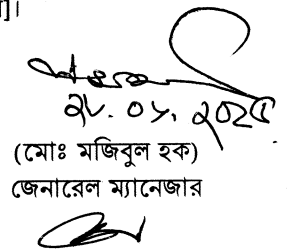 ]।
২৮.০৮.২০২৫
(মোঃ মজিবুল হক)
জেনারেল ম্যানেজার